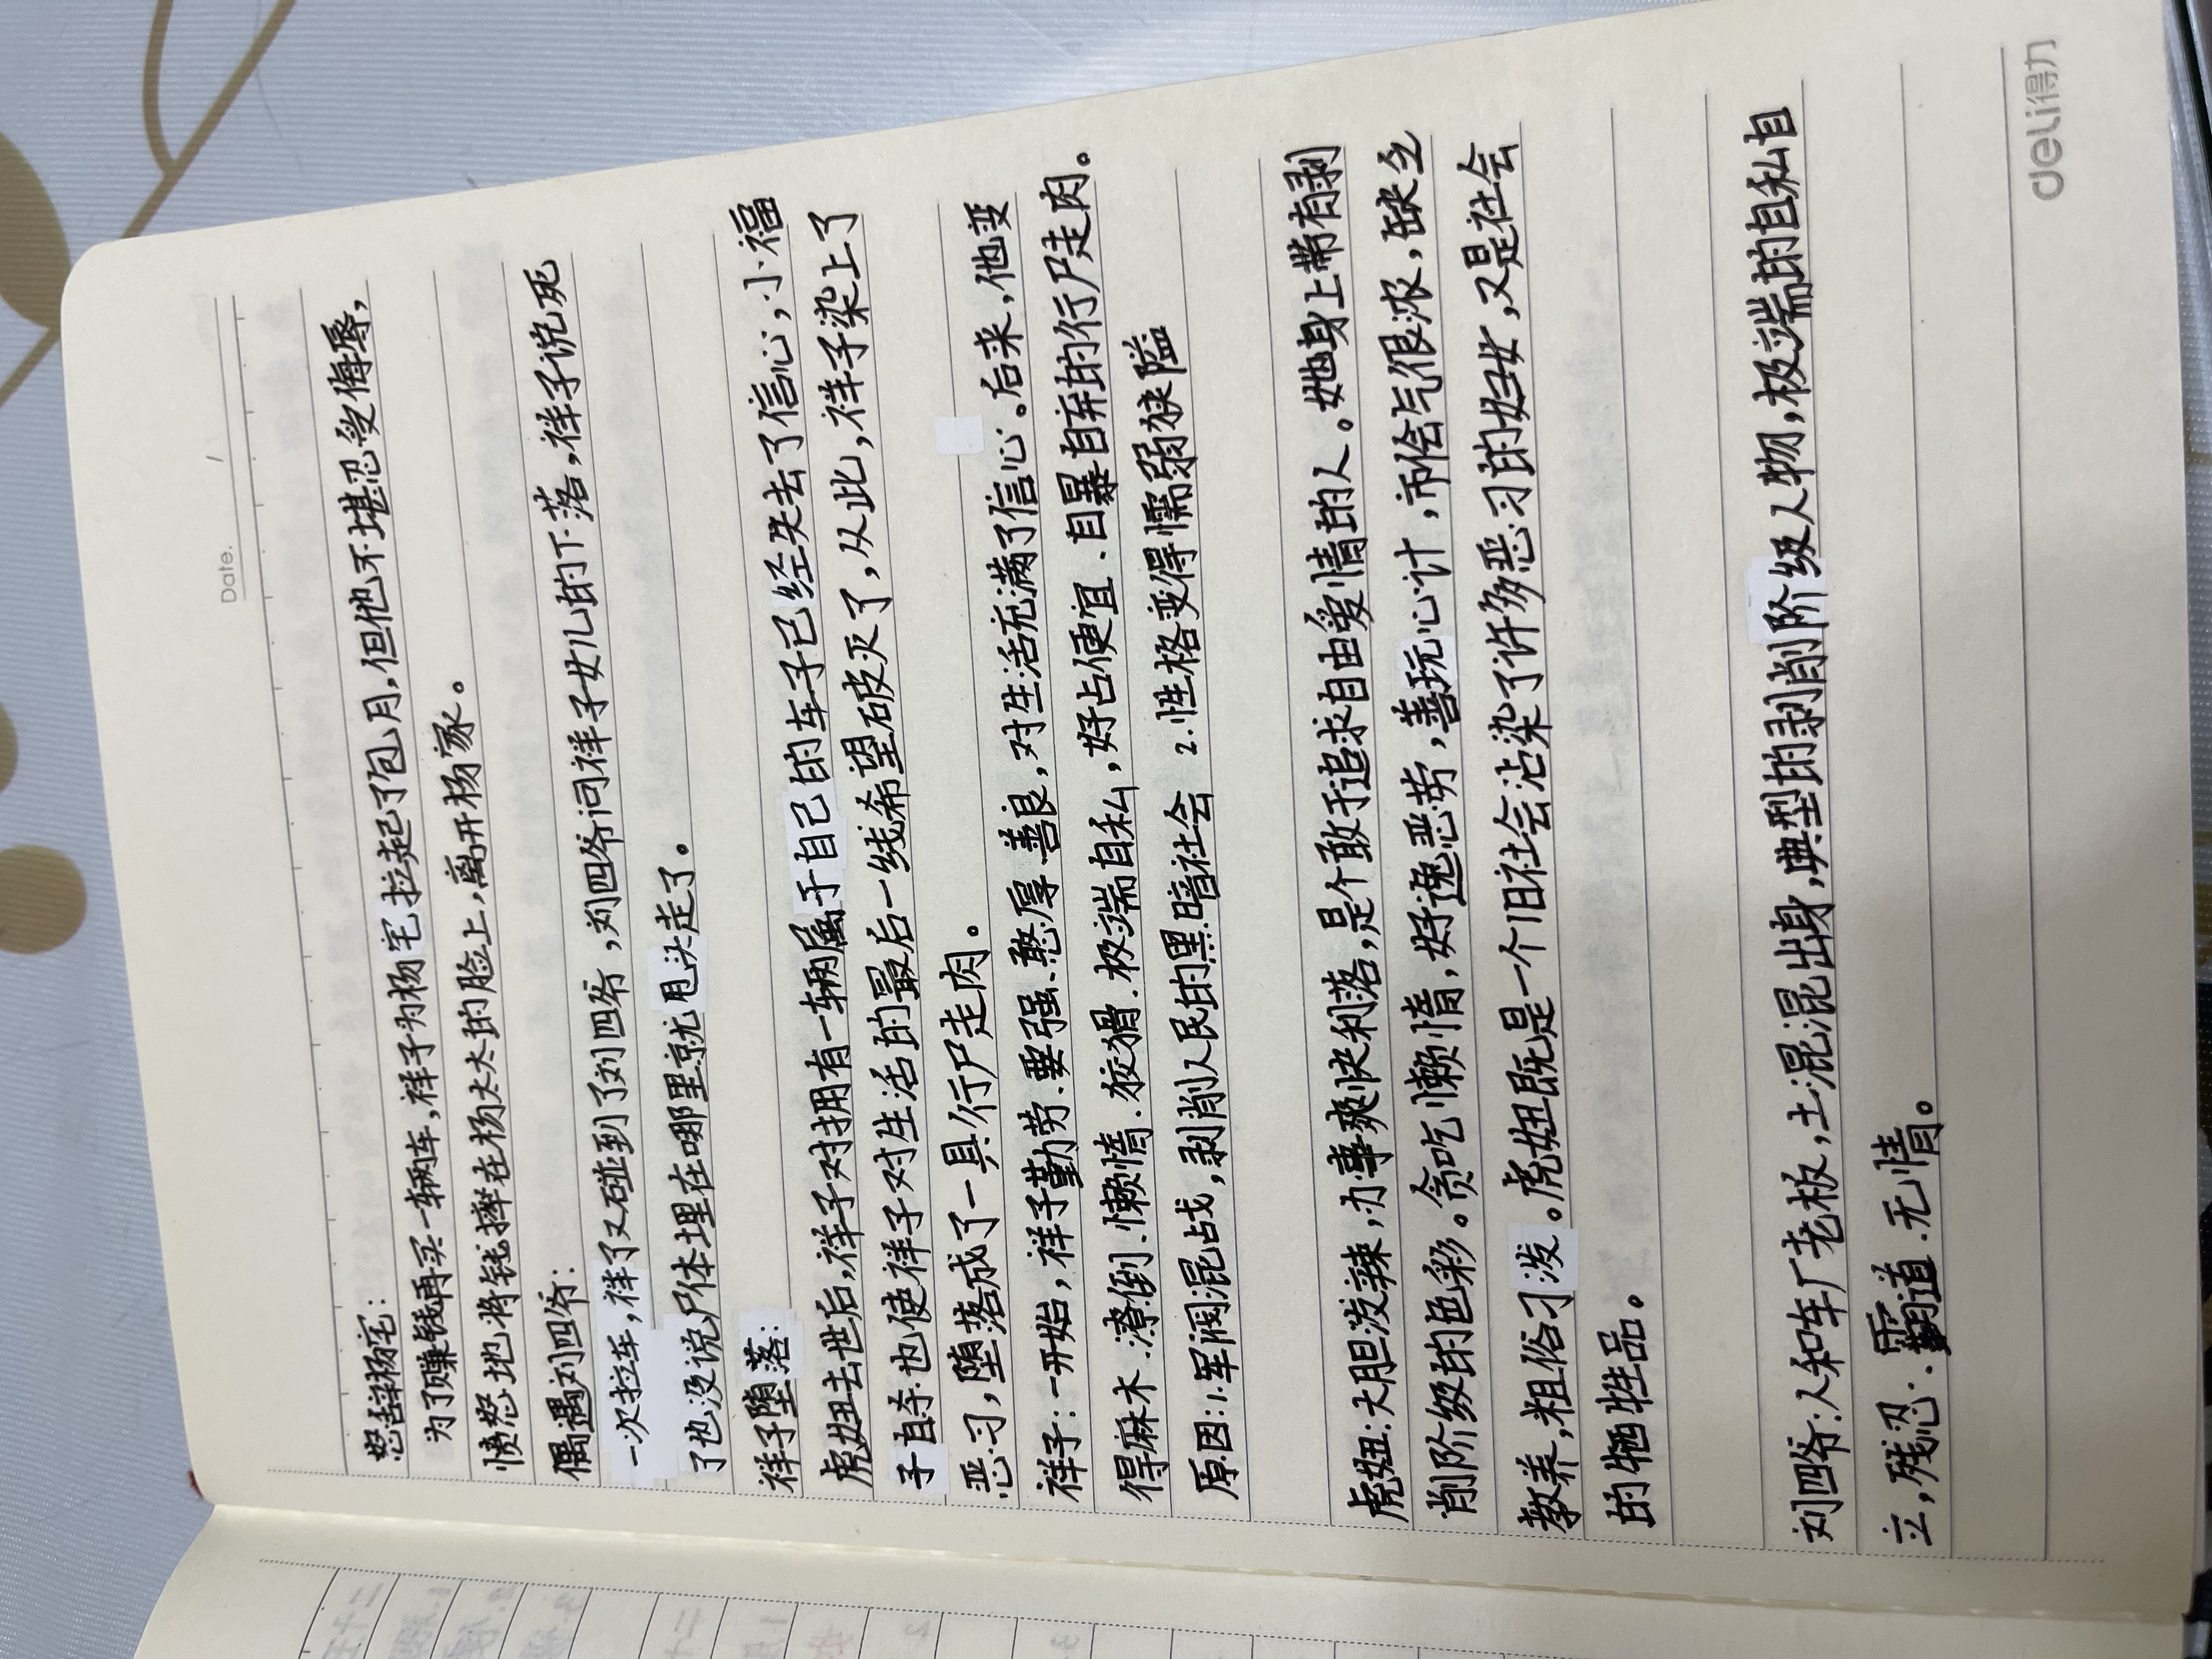 Date. /
怒辞杨宅：
为了赚钱再买一辆车，祥子为杨宅拉起了包月，但他不堪忍受侮辱，
愤怒地将钱摔在杨太太的脸上，离开杨家。
偶遇刘四爷：
一次拉车，祥子又碰到了刘四爷，刘四爷问祥子女儿的下落，祥子说死
了也没说尸体埋在哪里就甩头走了。
祥子堕落：
虎妞去世后，祥子对拥有一辆属于自己的车子已经失去了信心，小福
子自杀也使祥子对生活的最后一线希望破灭了，从此，祥子染上了
恶习，堕落成了一具行尸走肉。
祥子：一开始，祥子勤劳、要强、憨厚、善良，对生活充满了信心。后来，他变
得麻木、潦倒、懒惰、狡猾、极端自私，好占便宜、自暴自弃的行尸走肉。
原因：1.军阀混战，剥削人民的黑暗社会 2.性格变得懦弱狭隘
虎妞：大胆泼辣，办事爽快利落，是个敢于追求自由爱情的人。她身上带有剥
削阶级的色彩。贪吃懒惰，好逸恶劳，善玩心计，市侩气很浓，缺乏
教养，粗俗刁泼。虎妞既是一个旧社会沾染了许多恶习的妇女，又是社会
的牺牲品。
刘四爷：人和车厂老板，土混混出身，典型的剥削阶级人物，极端的自私自
立，残忍、霸道、无情。
deli得力